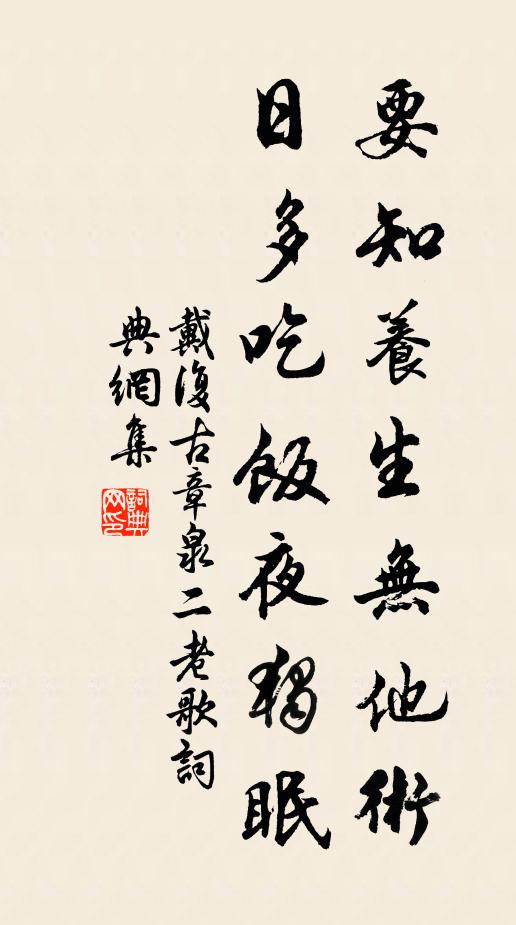 要知養生無他術
日多吃飯夜獨眠
戴復古章泉二老歌詞
典網集
詞典
网印